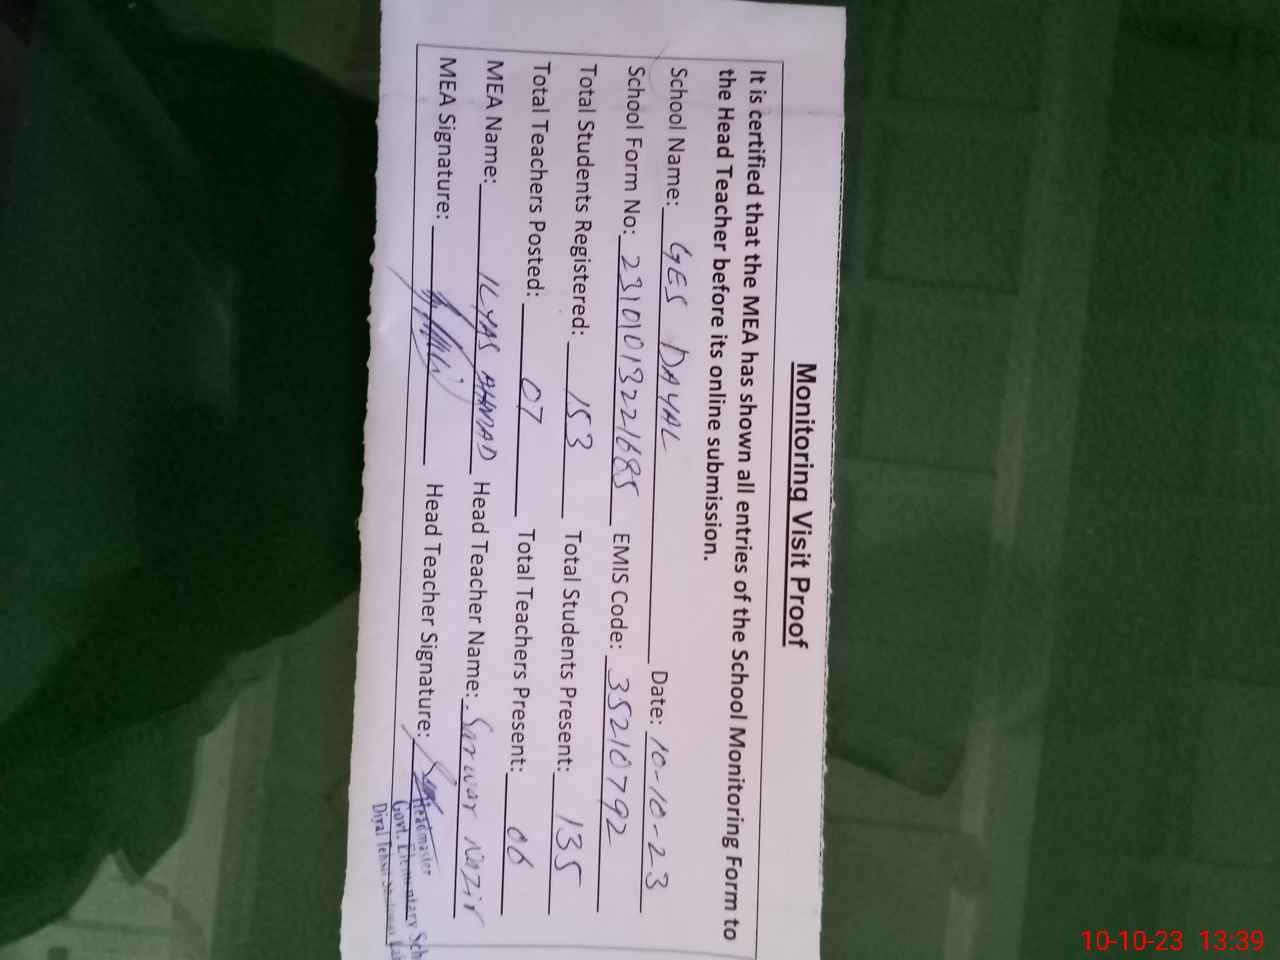 Monitoring Visit Proof
It is certified that the MEA has shown all entries of the School Monitoring Form to
the Head Teacher before its online submission.
School Name: GES DAYAL Date: 10-10-23
School Form No: 23101013221685 EMIS Code: 35210792
Total Students Registered: 153 Total Students Present: 135
Total Teachers Posted: 07 Total Teachers Present: 06
MEA Name: ILYAS AHMAD Head Teacher Name: Sarwar Nazir
MEA Signature: Head Teacher Signature:
Headmaster
Govt. Elementary Sch
Diyal Tehsil
10-10-23 13:39